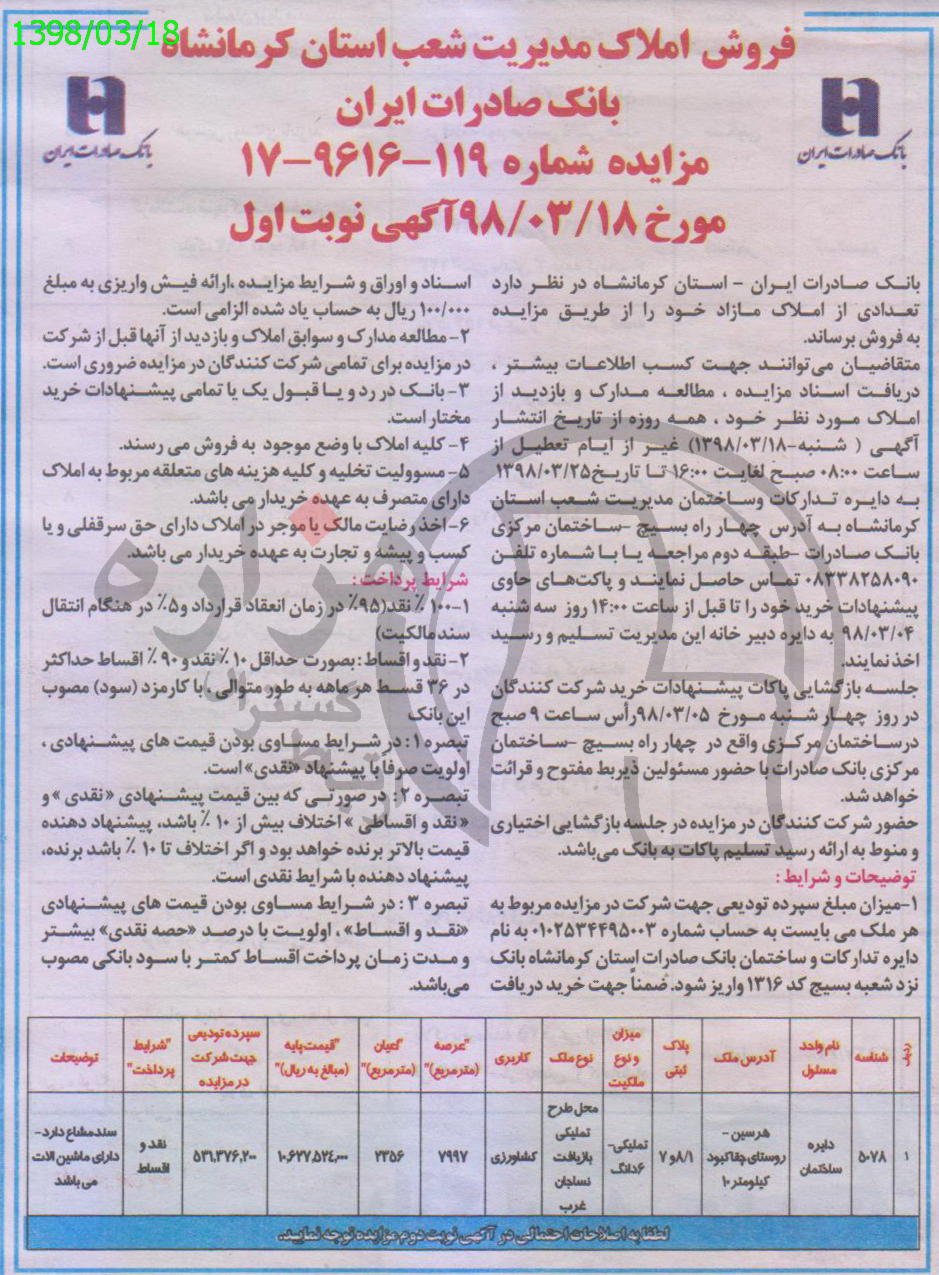 1398/03/18
فروش املاک مدیریت شعب استان کرمانشاه
بانک صادرات ایران
مزایده شماره ۱۱۹-۹۶۱۶-۱۷
مورخ ۹۸/۰۳/۱۸آگهی نوبت اول
بانک صادرات ایران
بانک صادرات ایران
بانک صادرات ایران - استان کرمانشاه در نظر دارد
تعدادی از املاک مازاد خود را از طریق مزایده
به فروش برساند.
متقاضیان می‌توانند جهت کسب اطلاعات بیشتر ،
دریافت اسناد مزایده ، مطالعه مدارک و بازدید از
املاک مورد نظر خود ، همه روزه از تاریخ انتشار
آگهی ( شنبه-۱۳۹۸/۰۳/۱۸) غیر از ایام تعطیل از
ساعت ۰۸:۰۰ صبح لغایت ۱۶:۰۰ تا تاریخ۱۳۹۸/۰۳/۲۵
به دایره تدارکات وساختمان مدیریت شعب استان
کرمانشاه به آدرس چهار راه بسیج -ساختمان مرکزی
بانک صادرات -طبقه دوم مراجعه یا با شماره تلفن
۰۸۳۳۸۲۵۸۰۹۰ تماس حاصل نمایند و پاکت‌های حاوی
پیشنهادات خرید خود را تا قبل از ساعت ۱۴:۰۰ روز سه شنبه
۹۸/۰۳/۰۴ به دایره دبیر خانه این مدیریت تسلیم و رسید
اخذ نمایند.
جلسه بازگشایی پاکات پیشنهادات خرید شرکت کنندگان
در روز چهار شنبه مورخ ۹۸/۰۳/۰۵رأس ساعت ۹ صبح
درساختمان مرکزی واقع در چهار راه بسیج -ساختمان
مرکزی بانک صادرات با حضور مسئولین ذیربط مفتوح و قرائت
خواهد شد.
حضور شرکت کنندگان در مزایده در جلسه بازگشایی اختیاری
و منوط به ارائه رسید تسلیم پاکات به بانک می‌باشد.
توضیحات و شرایط :
۱-میزان مبلغ سپرده تودیعی جهت شرکت در مزایده مربوط به
هر ملک می بایست به حساب شماره ۰۱۰۲۵۳۴۴۹۵۰۰۳ به نام
دایره تدارکات و ساختمان بانک صادرات استان کرمانشاه بانک
نزد شعبه بسیج کد ۱۳۱۶ واریز شود. ضمناً جهت خرید دریافت
اسناد و اوراق و شرایط مزایده ،ارائه فیش واریزی به مبلغ
۱۰۰/۰۰۰ ریال به حساب یاد شده الزامی است.
۲-مطالعه مدارک و سوابق املاک و بازدید از آنها قبل از شرکت
در مزایده برای تمامی شرکت کنندگان در مزایده ضروری است.
۳- بانک در رد و یا قبول یک یا تمامی پیشنهادات خرید
مختار است.
۴- کلیه املاک با وضع موجود به فروش می رسند.
۵- مسوولیت تخلیه و کلیه هزینه های متعلقه مربوط به املاک
دارای متصرف به عهده خریدار می باشد.
۶- اخذ رضایت مالک یا موجر در املاک دارای حق سرقفلی و یا
کسب و پیشه و تجارت به عهده خریدار می باشد.
شرایط پرداخت :
۱-۱۰۰ ٪ نقد(۹۵٪ در زمان انعقاد قرارداد و۵٪ در هنگام انتقال
سند مالکیت)
۲- نقد و اقساط : بصورت حداقل ۱۰ ٪ نقد و ۹۰ ٪ اقساط حداکثر
در ۳۶ قسط هر ماهه به طور متوالی ، با کارمزد (سود) مصوب
این بانک
تبصره ۱ : در شرایط مساوی بودن قیمت های پیشنهادی ،
اولویت صرفاً با پیشنهاد «نقدی» است.
تبصره ۲ : در صورتی که بین قیمت پیشنهادی «نقدی » و
« نقد و اقساطی » اختلاف بیش از ۱۰ ٪ باشد، پیشنهاد دهنده
قیمت بالاتر برنده خواهد بود و اگر اختلاف تا ۱۰ ٪ باشد برنده،
پیشنهاد دهنده با شرایط نقدی است.
تبصره ۳ : در شرایط مساوی بودن قیمت های پیشنهادی
«نقد و اقساط» ، اولویت با درصد «حصه نقدی» بیشتر
و مدت زمان پرداخت اقساط کمتر با سود بانکی مصوب
می‌باشد.
ردیف شناسه نام واحد مسئول آدرس ملک پلاک ثبتی میزان و نوع ملکیت نوع ملک کاربری "عرصه (مترمربع)" "اعیان (مترمربع)" "قیمت پایه (مبالغ به ریال)" سپرده تودیعی جهت شرکت در مزایده "شرایط پرداخت" توضیحات
۱ ۵۰۷۸ دایره ساختمان هرسین - روستای چقاکبود کیلومتر ۱۰ ۸/۱و ۷ تملیکی- ۶دانگ محل طرح تملیکی بازیافت نساجان غرب کشاورزی ۷۹۹۷ ۲۳۵۶ ۱۰,۶۲۷,۵۲۴,۰۰۰ ۵۳۱,۳۷۶,۲۰۰ نقد و اقساط سند مشاع دارد- دارای ماشین الات می باشد
لطفا به اصلاحات احتمالی در آگهی نوبت دوم مزایده توجه نمایید.